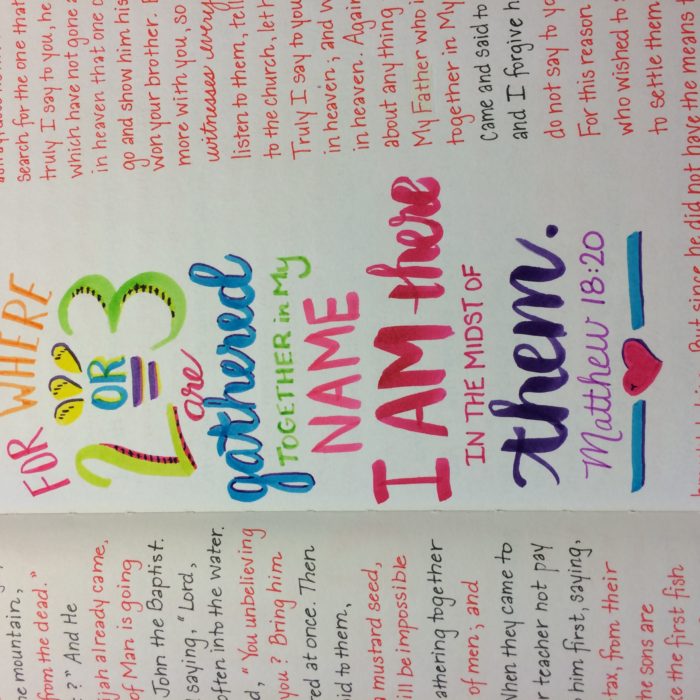 mountain,
from the dead."
?" And He
jah already came,
of Man is going
John the Baptist.
saying, "Lord,
often into the water.
d, "You unbelieving
you? Bring him
red at once. Then
id to them,
mustard seed,
ill be impossible
athering together
of men; and
When they came to
teacher not pay
him first, saying,
ax, from their
e sons are
the first fish
FOR WHERE
2 OR 3
are
gathered
TOGETHER in My
NAME
I AM there
IN THE MIDST OF
them.
Matthew 18:20
search for the one that
truly I say to you, he
which have not gone a
in heaven that one o
go and show him his
won your brother.
more with you, so
witnesses every
listen to them, tell
to the church, let h
Truly I say to you
in heaven; and w
in heaven. Again
about anything
My Father who i
together in My
Came and said to
and I forgive h
do not say to yo
For this reason
who wished to s
to settle them
But since he did not have the means t